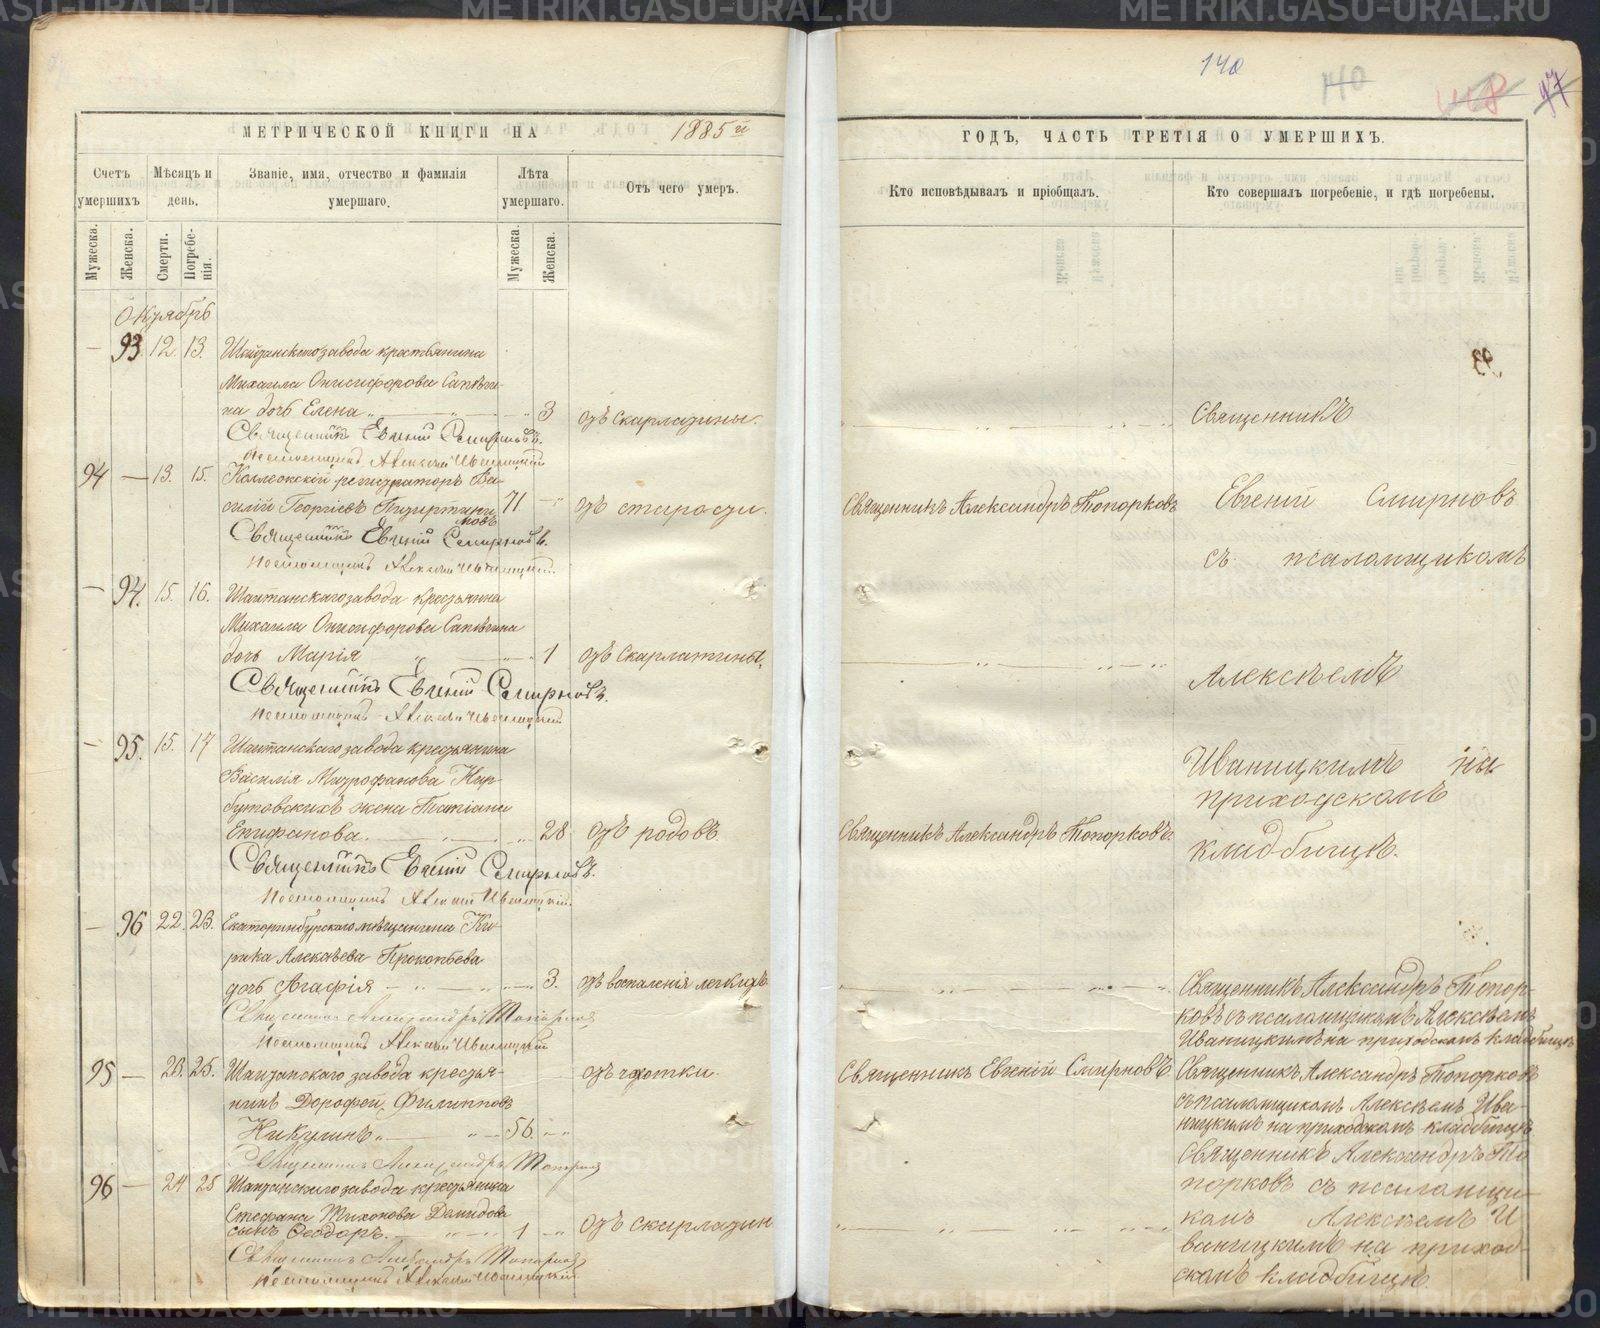 METRIKI.GASO-URAL.RU
METRIKI.GASO-URAL.RU
140
МЕТРИЧЕСКОЙ КНИГИ НА 1885й
ГОДЪ, ЧАСТЬ ТРЕТІЯ О УМЕРШИХЪ.
Счетъ умершихъ
Мѣсяцъ и день.
Званіе, имя, отчество и фамилія умершаго.
Лѣта умершаго.
Отъ чего умеръ.
Кто исповѣдывалъ и пріобщалъ.
Кто совершалъ погребеніе, и гдѣ погребены.
Мужеска.
Женска.
Смерти.
Погребенія.
Мужеска.
Женска.
Октябрь
— 93 12 13. Шайтанскаго завода крестьянина
Михаила Онисифорова Сапѣги-
на дочь Елена 3 отъ скарлатины.
Священникъ Евгеній Смирновъ.
Псаломщикъ Алексѣй Иваницкій
94 — 13. 15. Коллежскій регистраторъ Ва-
силій Георгіевъ 71 отъ старости.
Священникъ Александръ Топорковъ
Священникъ Евгеній Смирновъ.
Псаломщикъ Алексѣй Иваницкій.
— 94. 15. 16. Шайтанскаго завода крестьянина
Михаила Онисифорова Сапѣгина
дочь Марія 1 отъ скарлатины.
Священникъ Евгеній Смирновъ.
Псаломщикъ Алексѣй Иваницкій
— 95. 15. 17 Шайтанскаго завода крестьянина
Василія Митрофанова Нар-
бутовскихъ жена Татіана
Епифанова. 28 отъ родовъ.
Священникъ Александръ Топорковъ.
Священникъ Евгеній Смирновъ.
Псаломщикъ Алексѣй Иваницкій.
Священникъ
Евгеній Смирновъ
съ псаломщикомъ
Алексѣемъ
Иваницкимъ на
приходскомъ
кладбищѣ.
— 96 22. 23. Екатеринбургскаго мѣщанина Ки-
рика Алексѣева Прокопьева
дочь Агафія 3. отъ воспаленія легкихъ
Священникъ Александръ Топорковъ
Псаломщикъ Алексѣй Иваницкій
Священникъ Александръ Топор-
ковъ съ псаломщикомъ Алексѣемъ
Иваницкимъ на приходскомъ кладбищѣ
95 — 23. 25. Шайтанскаго завода крестья-
нинъ Дорофей Филипповъ
Никулинъ 56. отъ чахотки.
Священникъ Евгеній Смирновъ
Священникъ Александръ Топорковъ
Священникъ Александръ Топорковъ
съ псаломщикомъ Алексѣемъ Ива-
ницкимъ на приходскомъ кладбищѣ
96 — 24 25 Шайтанскаго завода крестьянина
Стефана Тихонова Демидова
сынъ Ѳеодоръ. 1 отъ скарлатин
Священникъ Александръ Топорковъ
Псаломщикъ Алексѣй Иваницкій
Священникъ Александръ То
порковъ съ псаломщи-
комъ Алексѣемъ И
ваницкимъ на приход-
скомъ кладбищѣ.